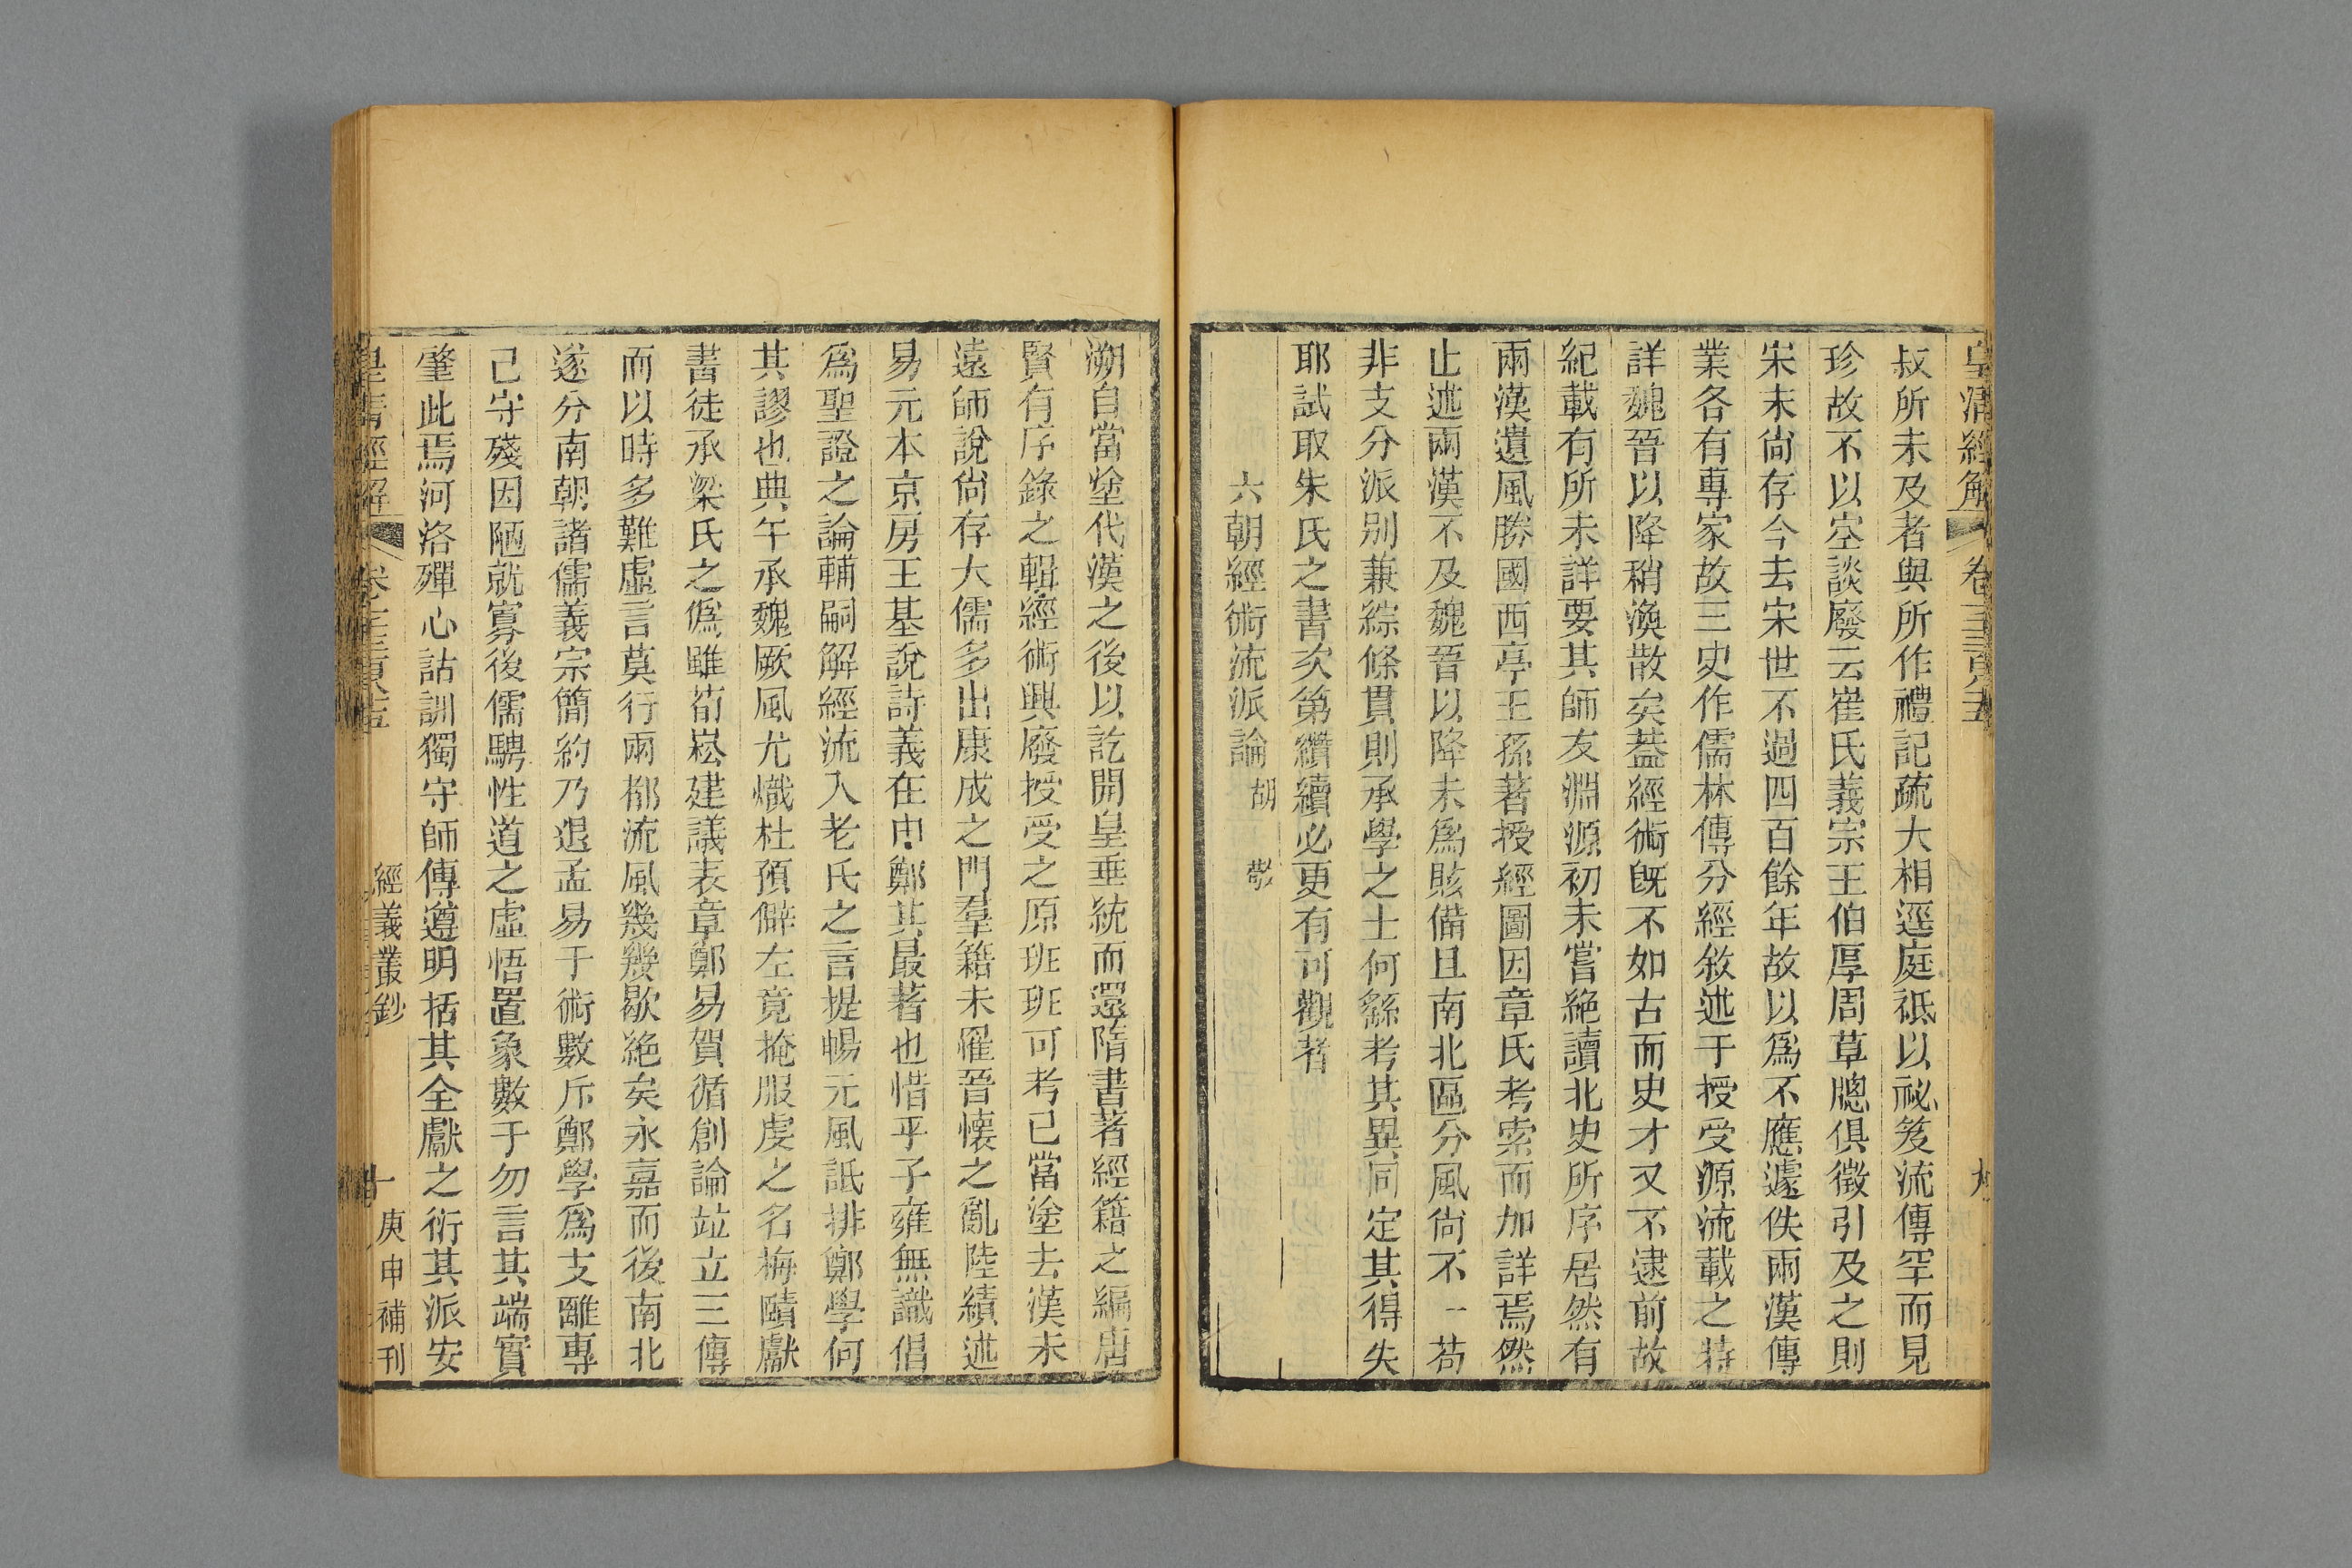 皇清經解
叔所未及者與所作禮記疏大相逕庭祗以祕笈流傳罕而見
珍故不以空談廢云崔氏義宗王伯厚周草牕俱徵引及之則
宋末尙存今去宋世不過四百餘年故以爲不應遽佚兩漢傳
業各有專家故三史作儒林傳分經敘述于授受源流載之特
詳魏晉以降稍渙散矣葢經術旣不如古而史才又不逮前故
紀載有所未詳要其師友淵源初未嘗絶讀北史所序居然有
兩漢遺風勝國西亭王孫著授經圖因章氏考索而加詳焉然
止述兩漢不及魏晉以降未爲賅備且南北區分風尙不一苟
非支分派別兼綜條貫則承學之士何繇考其異同定其得失
耶試取朱氏之書次第纘續必更有可觀者
六朝經術流派論 胡 敬
溯自當塗代漢之後以訖開皇垂統而還隋書著經籍之編唐
賢有序錄之輯經術興廢授受之原班班可考已當塗去漢未
遠師說尙存大儒多出康成之門羣籍未罹晉懷之亂陸績述
易元本京房王基說詩義在申鄭其最著也惜乎子雍無識倡
爲聖證之論輔嗣解經流入老氏之言提暢元風詆排鄭學何
其謬也典午承魏厥風尤熾杜預僻左竟掩服虔之名梅賾獻
書徒承梁氏之僞雖荀崧建議表章鄭易賀循創論竝立三傳
而以時多難虛言莫行兩都流風幾幾歇絶矣永嘉而後南北
遂分南朝諸儒義宗簡約乃退孟易于術數斥鄭學爲支離專
己守殘因陋就寡後儒騁性道之虛悟置象數于勿言其端實
肇此焉河洛殫心詁訓獨守師傳遵明括其全獻之衍其派安
皇清經解
經義叢鈔
十
庚申補刊